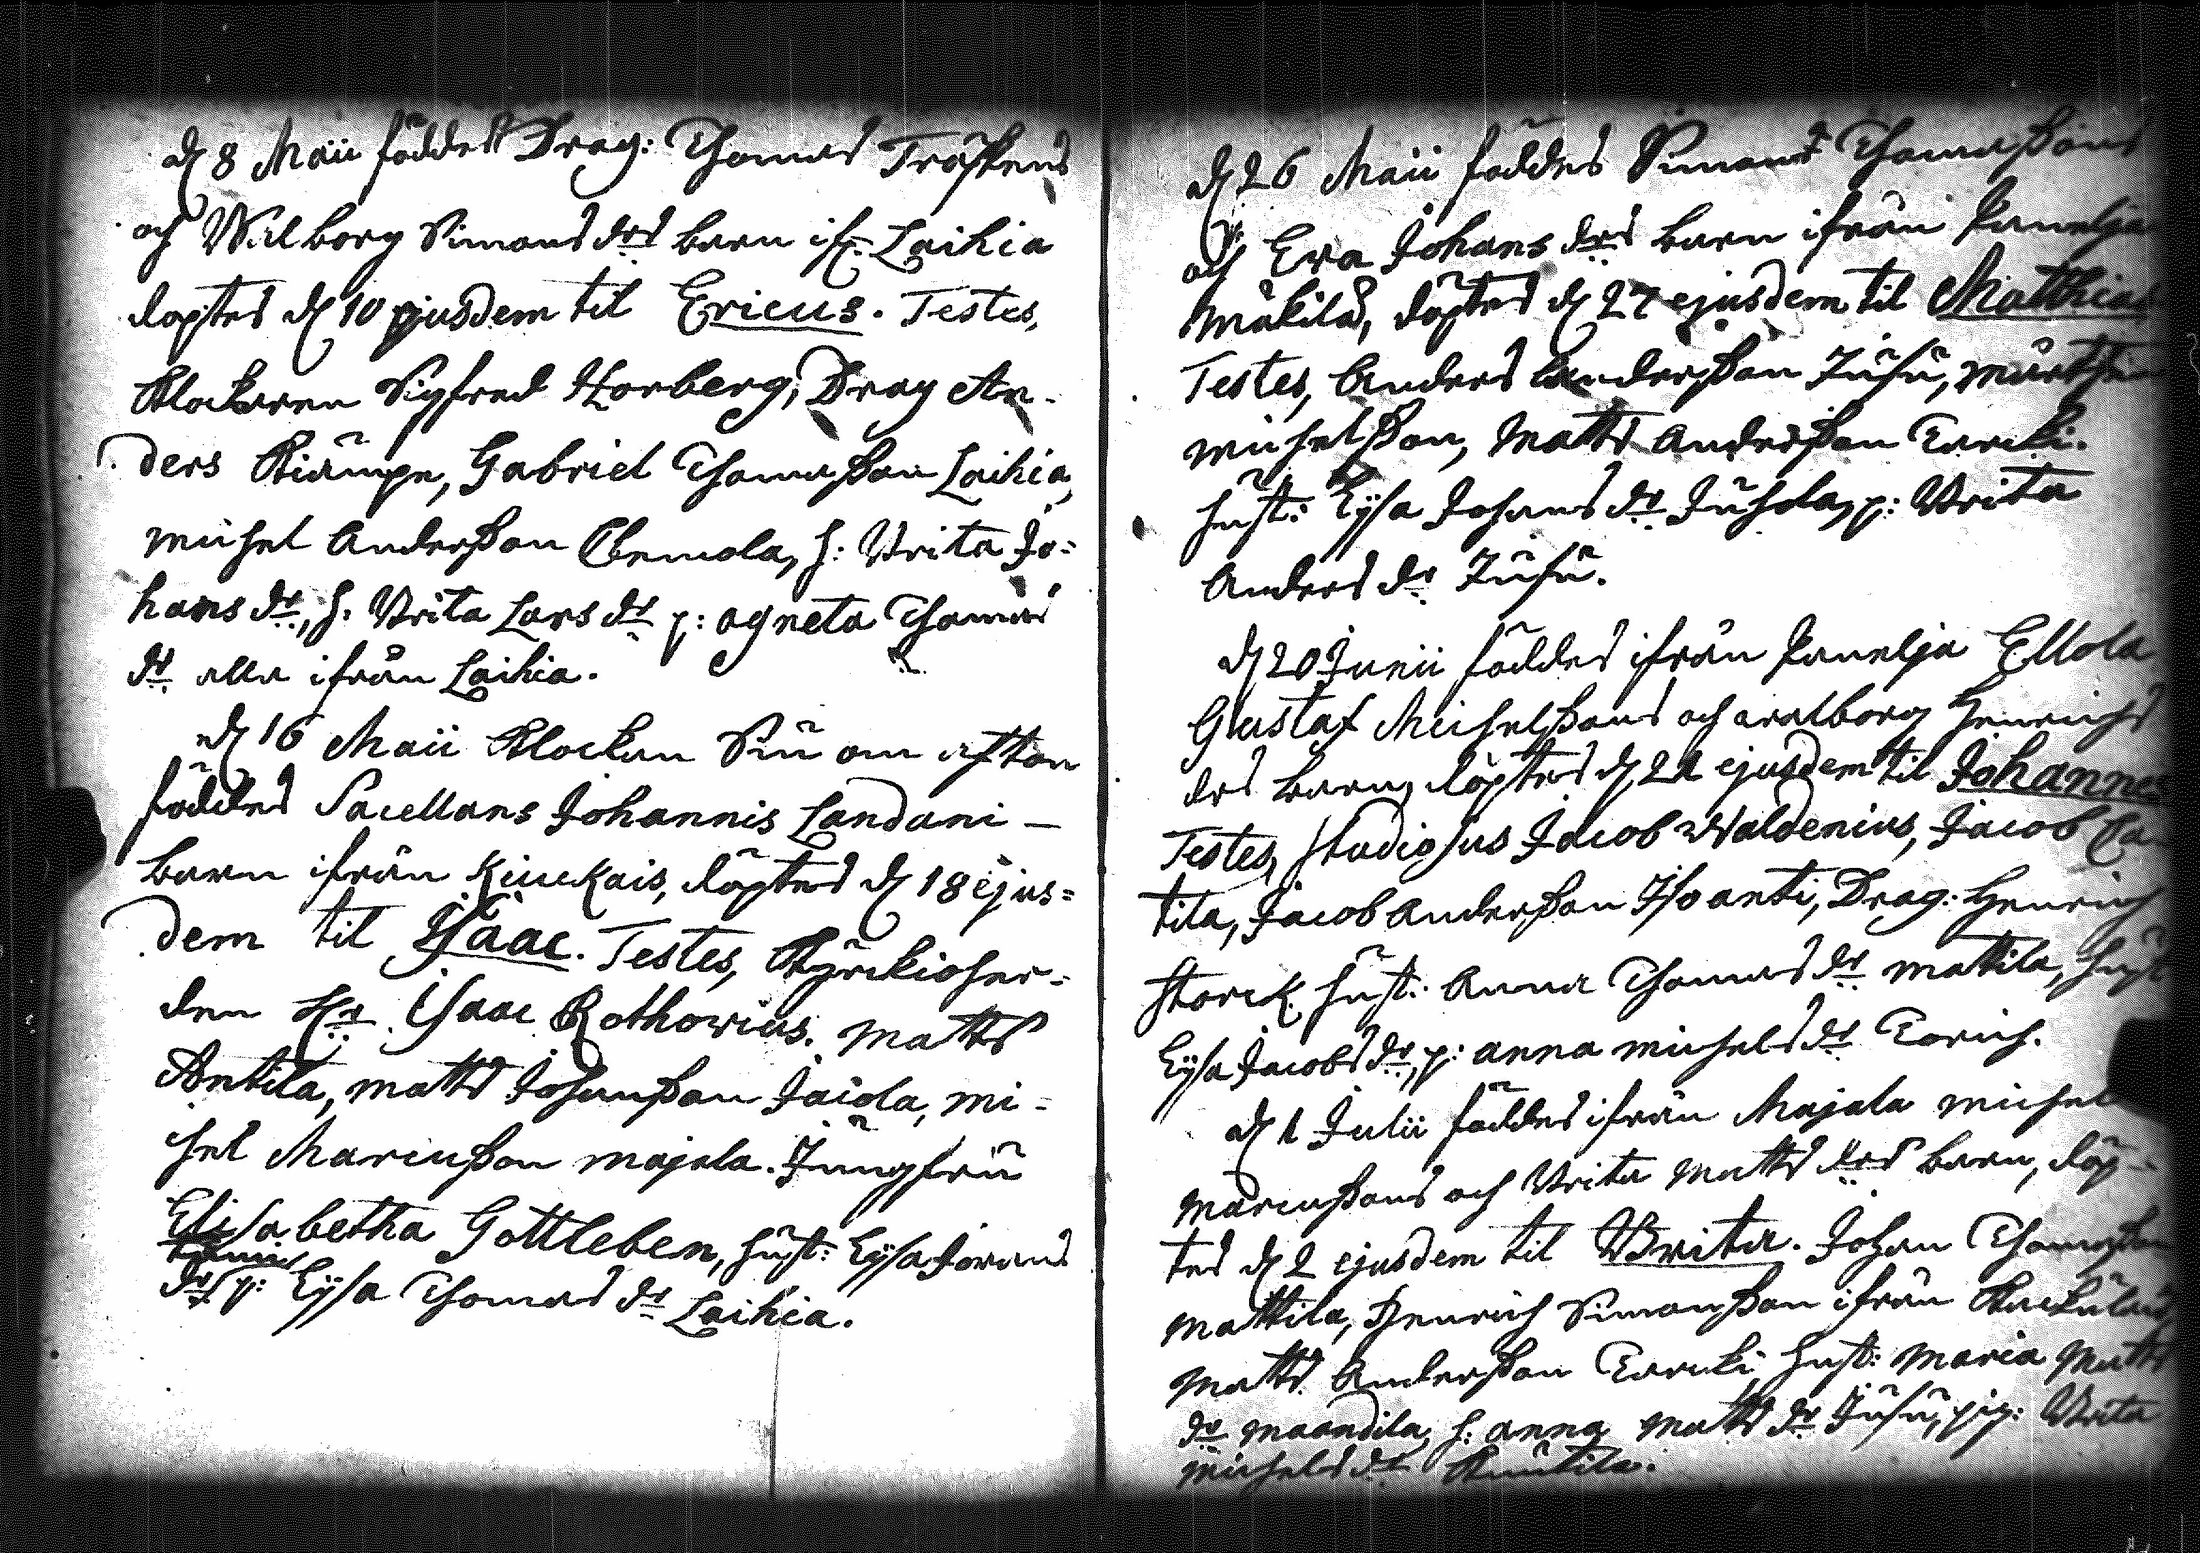 d. 8 Maii föddes Drag: Thomas Träskens
och Walborg Simons drs barn ifr. Laihia
döptes d. 10 ejusdem til Ericus. Testes,
Klockaren Sigfred Norberg, Drag An-
ders Kiämpe, Gabriel Thomasson Laihia,
Michel Andersson Clemola, h: Brita Jo=
hans dr, h. Brita Lars dr p: Agneta Thomas
dr alla ifrån Laihia.
d. 16 Maii Klockan Siu om afton
föddes Sacellans Johannis Landani —
barn ifrån Kiuckais, döptes d. 18 ejus=
dem til Isaac. Testes, Kyrckioher=
den Hr. Isaac Rothovius. Matts
Antila, Matts Johansson Jaiola, Mi=
chel Marcusson Majala. Jungfru
Elisabetha Gottleben, hust: Lysa Jörans
dr p: Lysa Thomas dr Laihia.
d. 26 Maii föddes Simons Thomassons
och Eva Johans drs barn ifrån Panelja
Mäkilä, döptes d. 27 ejusdem til Matthias
Testes, Anders Andersson Jusu, Mårthen
Michelsson, Matts Andersson Eericki.
hust: Lysa Johans dr Juhola, p: Brita
Anders dr Jusu.
d. 20 Junii föddes ifrån Panelja Ellola
Gustaf Michelssons och Walborg Henrichs
drs barn, döptes d. 21 ejusdem til Johannes
Testes, Studiosus Jacob Waldenius, Jacob
tila, Jacob Andersson Isoanti, Drag: Henrich
Storck hust: Anna Thomas dr Mattila, hust
Lysa Jacobs dr, p: Anna Michels dr
d. 1 Julii föddes ifrån Majala Michel
Marcussons och Brita Matts drs barn, döp-
tes d. 2 ejusdem til Brita. Johan Thomasson
Mattila, Henrich Simonsson ifrån
Matts Andersson Eericki, hust: Maria Matts
dr Maandila, h: Anna Matts dr Jusu, pig: Brita
Michels dr